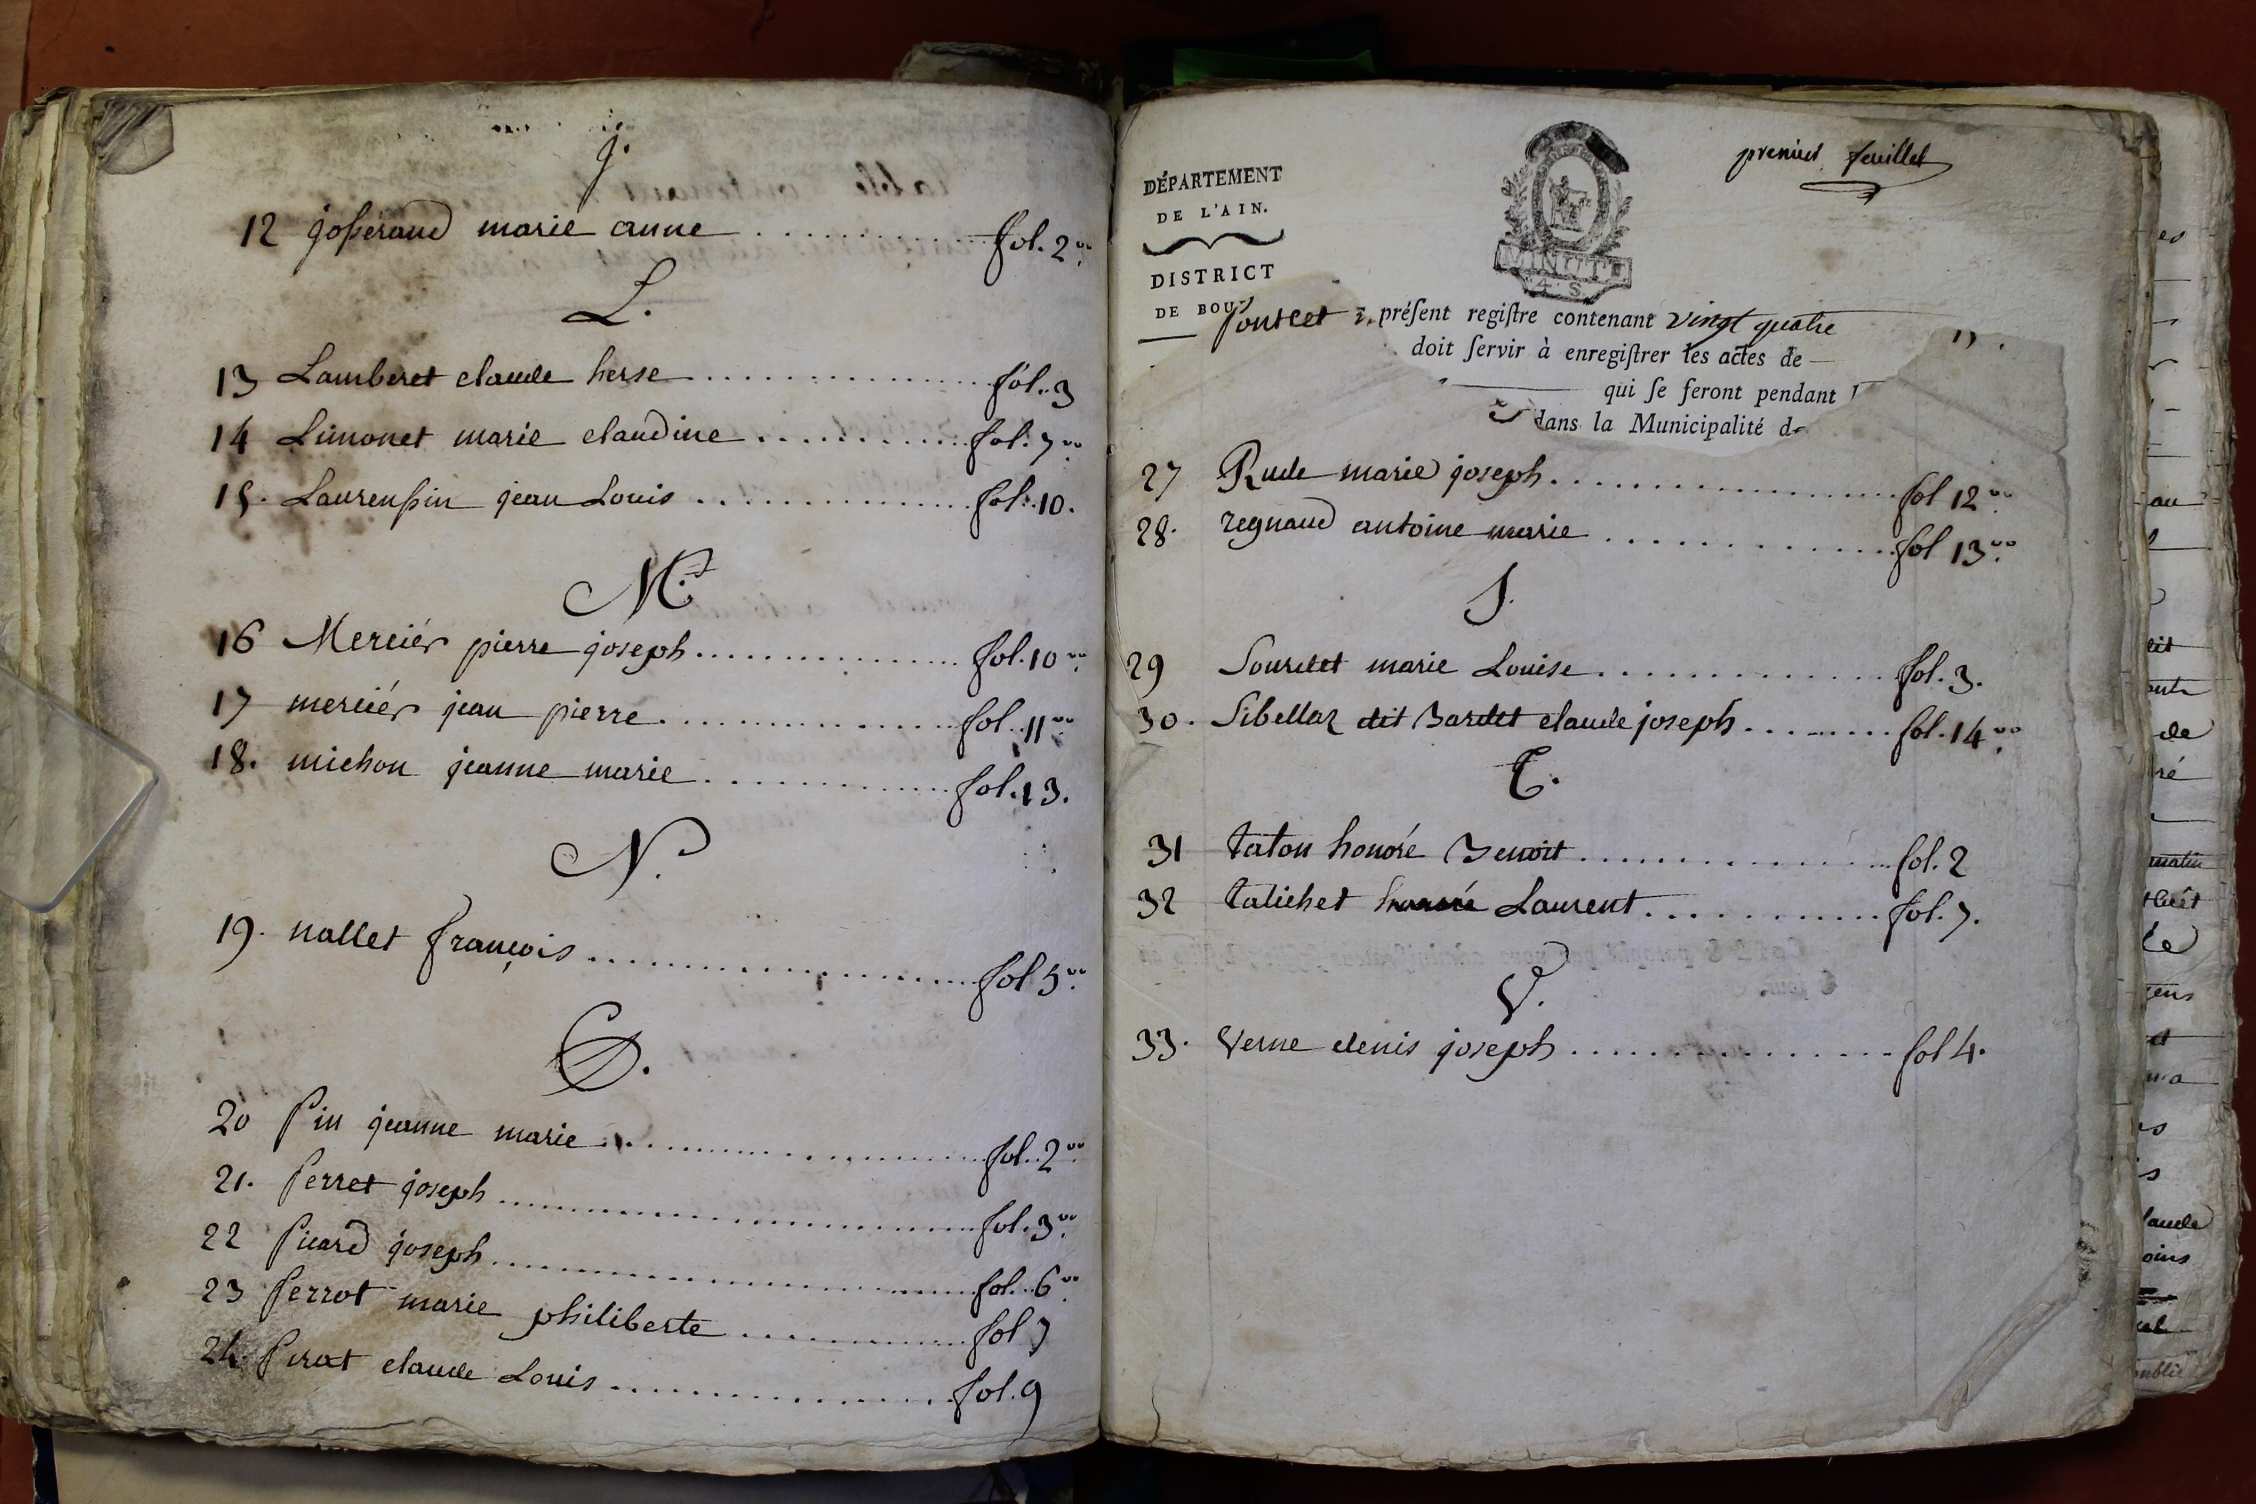 J.
12 josserand marie anne ............ fol. 2 vo.
L.
13 Lamberet claude herse ............ fol. 3
14 Limonet marie claudine ............ fol. 7 vo.
15. Laurensin jean Louis ............ fol. 10.
M.
16 Merciér pierre joseph ............ fol. 10 vo.
17 merciér jean pierre ............ fol. 11 vo.
18. michon jeanne marie ............ fol. 13.
N.
19. nallet françois ............ fol 5 vo.
P.
20 Pin jeanne marie ............ fol. 2 vo.
21. Perret joseph ............ fol. 3 vo.
22 Picard joseph ............ fol. 6 vo.
23 Perrot marie philiberte ............ fol 7
24 Pirat claude Louis ............ fol. 9
premier feuillet
DÉPARTEMENT
DE L'AIN.
DISTRICT
DE BOU
MINUTE
4. S.
Poncet présent registre contenant vingt quatre
doit servir à enregistrer les actes de
qui se feront pendant
dans la Municipalité d
27 Rude marie joseph ............ fol 12 vo.
28. regnaud antoine marie ............ fol 13 vo.
S.
29 Sourdet marie Louise ............ fol. 3.
30. Sibellaz dit Bardet claude joseph ............ fol. 14 vo.
T.
31 taton honoré Benoit ............ fol. 2
32 talichet honoré Laurent ............ fol. 7.
V.
33. Verne denis joseph ............ fol 4.